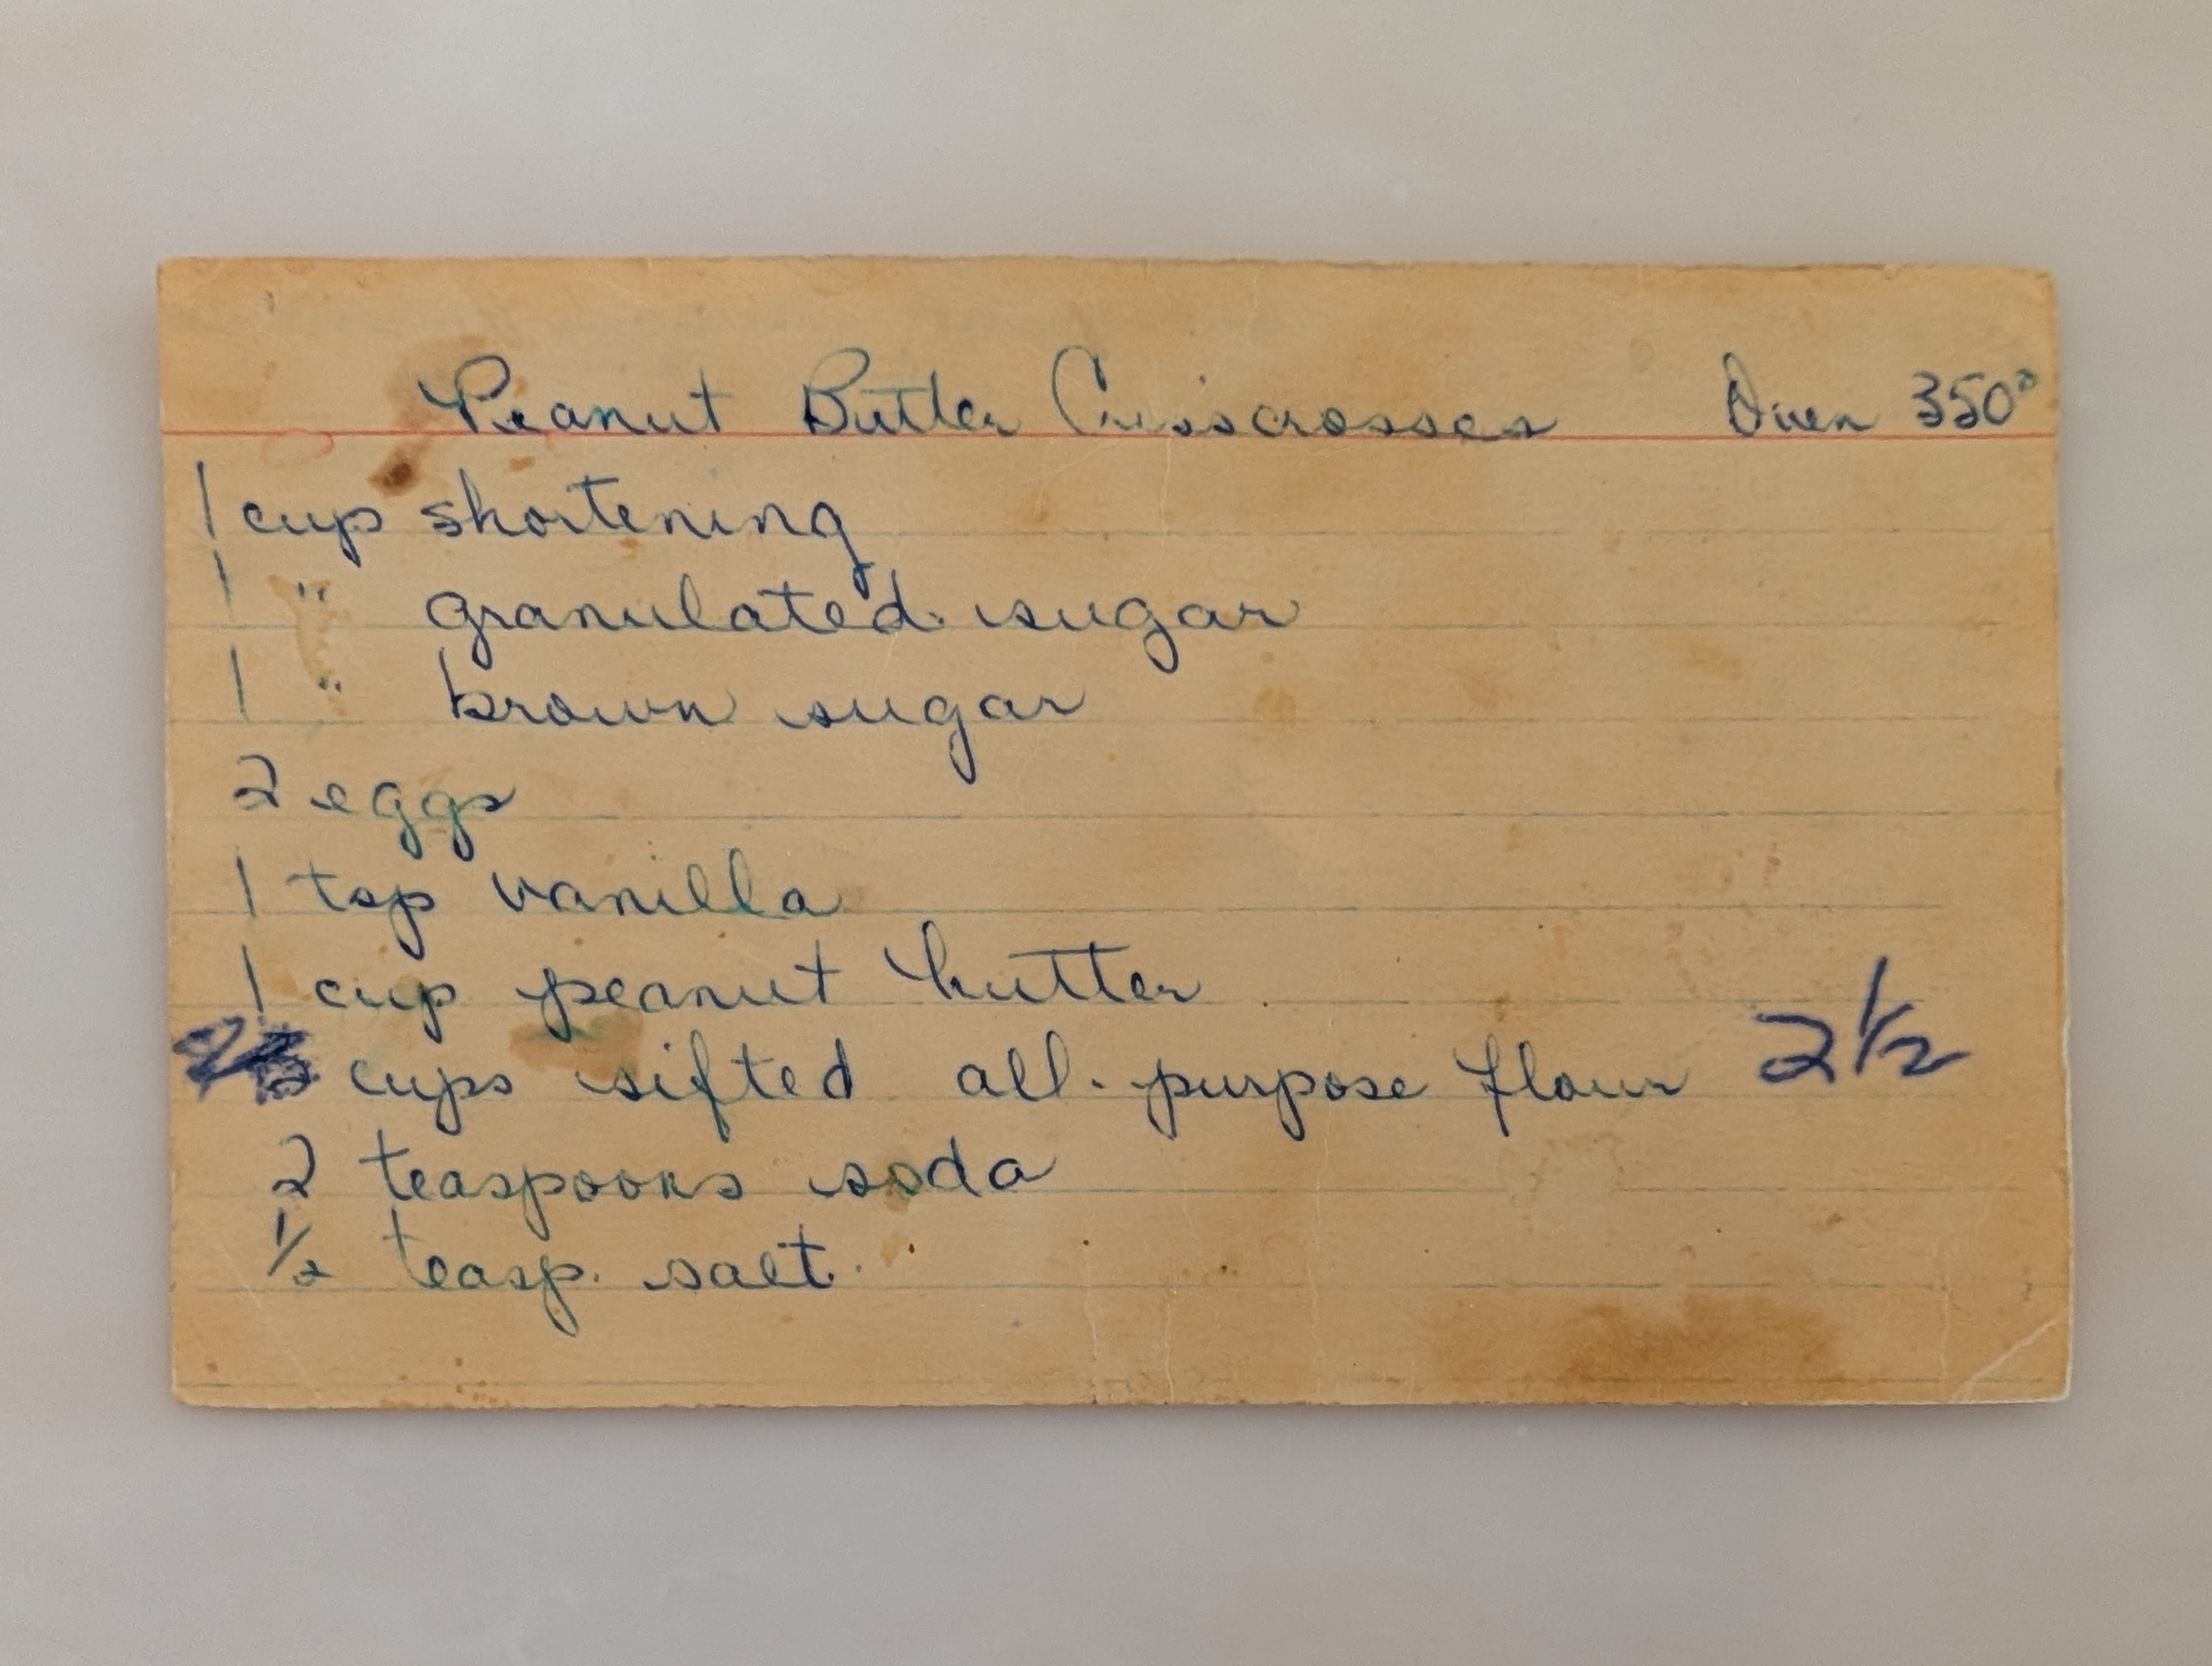 Peanut Butter Crisscrosses Oven 350°
1 cup shortening
1 " granulated sugar
1 " brown sugar
2 eggs
1 tsp vanilla
1 cup peanut butter
cups sifted all-purpose flour 2 1/2
2 teaspoons soda
1/2 teasp. salt.